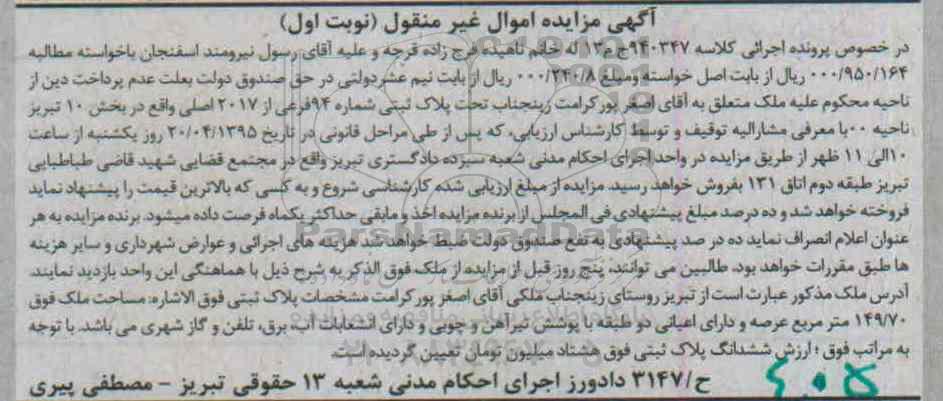 آگهی مزایده اموال غیر منقول (نوبت اول)
در خصوص پرونده اجرائی کلاسه ۹۴۰۳۴۷ج م۱۳ له خانم ناهیده فرج زاده قرجه و علیه آقای رسول نیرومند اسفنجان باخواسته مطالبه
۰۰۰/۹۵۰/۱۶۴ ریال از بابت اصل خواسته ومبلغ ۰۰۰/۲۴۰/۸ ریال از بابت نیم عشردولتی در حق صندوق دولت بعلت عدم پرداخت دین از
ناحیه محکوم علیه ملک متعلق به آقای اصغر پور کرامت زینجناب تحت پلاک ثبتی شماره ۹۴فرعی از ۲۰۱۷ اصلی واقع در بخش ۱۰ تبریز
ناحیه ۰۰با معرفی مشارالیه توقیف و توسط کارشناس ارزیابی، که پس از طی مراحل قانونی در تاریخ ۲۰/۰۴/۱۳۹۵ روز یکشنبه از ساعت
۱۰الی ۱۱ ظهر از طریق مزایده در واحد اجرای احکام مدنی شعبه سیزده دادگستری تبریز واقع در مجتمع قضایی شهید قاضی طباطبایی
تبریز طبقه دوم اتاق ۱۳۱ بفروش خواهد رسید. مزایده از مبلغ ارزیابی شده کارشناسی شروع و به کسی که بالاترین قیمت را پیشنهاد نماید
فروخته خواهد شد و ده درصد مبلغ پیشنهادی فی المجلس از برنده مزایده اخذ و مابقی حداکثر یکماه فرصت داده میشود. برنده مزایده به هر
عنوان اعلام انصراف نماید ده در صد پیشنهادی به نفع صندوق دولت ضبط خواهد شد هزینه های اجرائی و عوارض شهرداری و سایر هزینه
ها طبق مقررات خواهد بود. طالبین می توانند، پنج روز قبل از مزایده از ملک فوق الذکر به شرح ذیل با هماهنگی این واحد بازدید نمایند.
آدرس ملک مذکور عبارت است از تبریز روستای زینجناب ملکی آقای اصغر پور کرامت مشخصات پلاک ثبتی فوق الاشاره: مساحت ملک فوق
۱۴۹/۷۰ متر مربع عرصه و دارای اعیانی دو طبقه با پوشش تیرآهن و چوبی و دارای انشعابات آب، برق، تلفن و گاز شهری می باشد. با توجه
به مراتب فوق ؛ ارزش ششدانگ پلاک ثبتی فوق هشتاد میلیون تومان تعیین گردیده است.
ح/۳۱۴۷ دادورز اجرای احکام مدنی شعبه ۱۳ حقوقی تبریز - مصطفی پیری
ParsNamadData